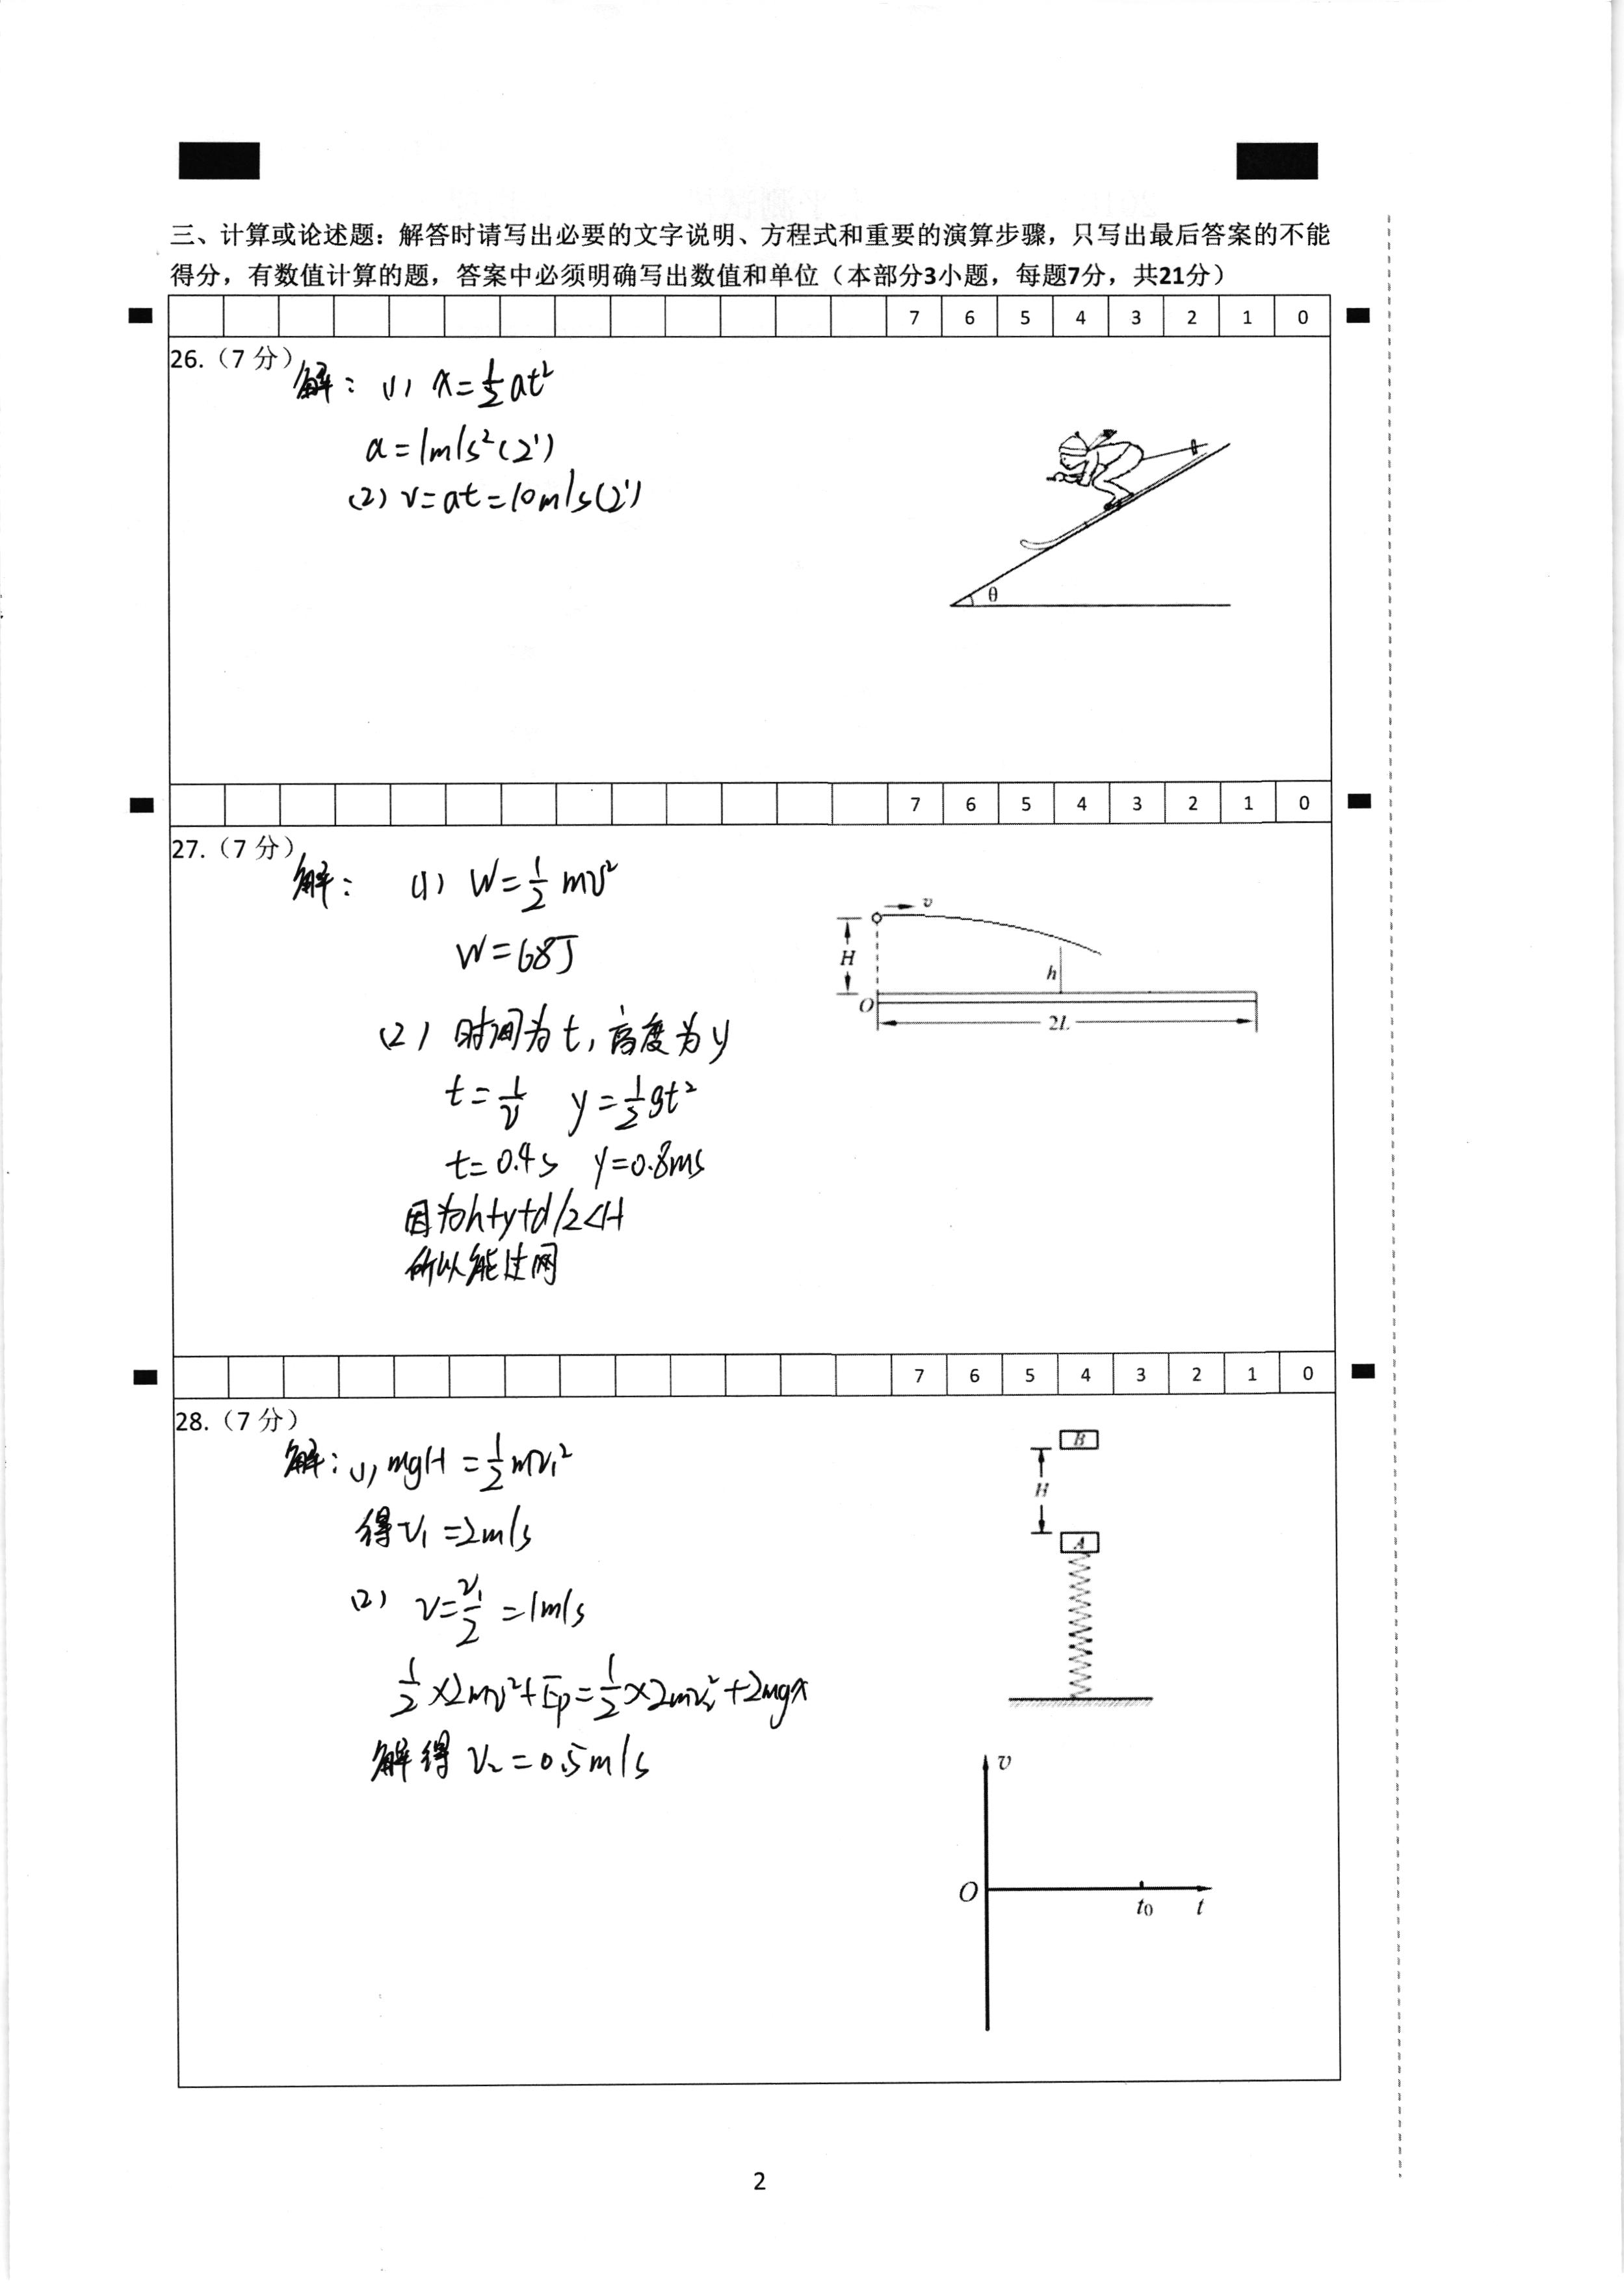 三、计算或论述题：解答时请写出必要的文字说明、方程式和重要的演算步骤，只写出最后答案的不能
得分，有数值计算的题，答案中必须明确写出数值和单位（本部分3小题，每题7分，共21分）
7 6 5 4 3 2 1 0
26.（7分）
解：(1) x=½at²
a=1m/s²(2')
(2) v=at=10m/s(2')
θ
7 6 5 4 3 2 1 0
27.（7分）
解： (1) W=½mv²
W=68J
(2) 时间为t，高度为y
t=l/v y=½gt²
t=0.4s y=0.8ms
因为h+y+d/2<H
所以能过网
v
H
h
O
2L
7 6 5 4 3 2 1 0
28.（7分）
解：(1) mgH=½mv₁²
得v₁=2m/s
(2) v=v₁/2=1m/s
½×2mv²+Ep=½×2mv₂²+2mgx
解得 v₂=0.5m/s
B
H
A
v
O
t₀ t
2